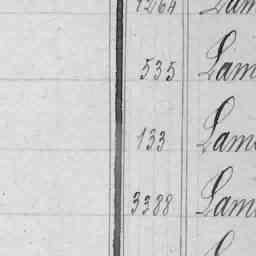 1264 Lam
535 Lam
133 Lam
3388 Lam